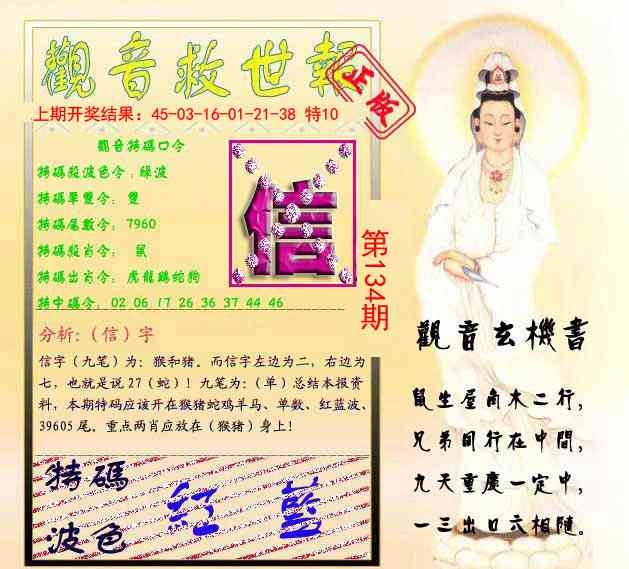 觀音救世報
正版
上期开奖结果：45-03-16-01-21-38 特10
觀音特碼口令
特碼殺波色令：綠波
特碼單雙令： 雙
特碼尾數令： 7960
特碼殺肖令： 鼠
特碼出肖令： 虎龍鷄蛇狗
特中碼令： 02 06 17 26 36 37 44 46
信
第134期
分析:（信）字
信字（九笔）为: 猴和猪。而信字左边为二，右边为
七，也就是说 27（蛇）！九笔为:（单）总结本报资
料，本期特码应该开在猴猪蛇鸡羊马、单数、红蓝波、
39605 尾。重点两肖应放在（猴猪）身上!
特碼
波色
紅 藍
觀音玄機書
鼠生屋角木二行，
兄弟同行在中間，
九天重慶一定中，
一三出口六相隨。